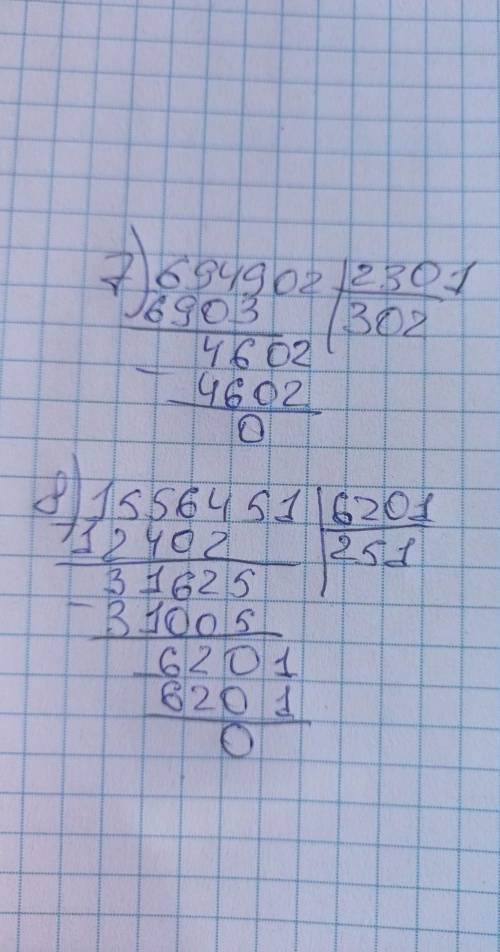 7) 694902 | 2301
6903 | 302
4602
- 4602
0
8) 1556451 | 6201
- 12402 | 251
31625
- 31005
6201
6201
0